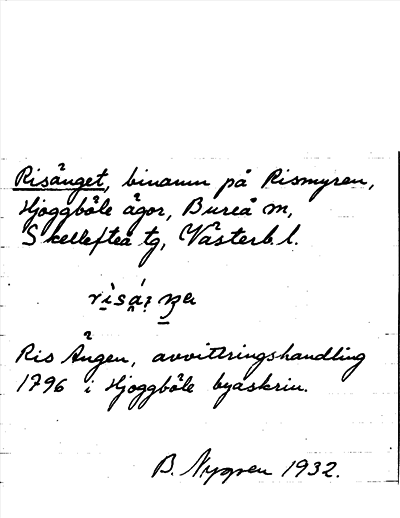 Risänget, binamn på Rismyren,
Hjoggböle ägor, Bureå m,
Skellefteå tg, Västerb. l.
Ris Ängen, avvittringshandling
1796 i Hjoggböle byaskrin.
B. Nygren 1932.